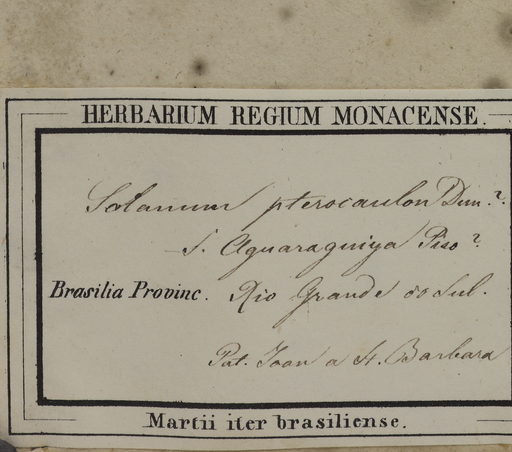 HERBARIUM REGIUM MONACENSE.
Solanum pterocaulon Dun?.
S. Aguaraquiya Piso?
Brasilia Provinc. Rio Grande do Sul.
Pat. Joan a S. Barbara
Martii iter brasiliense.